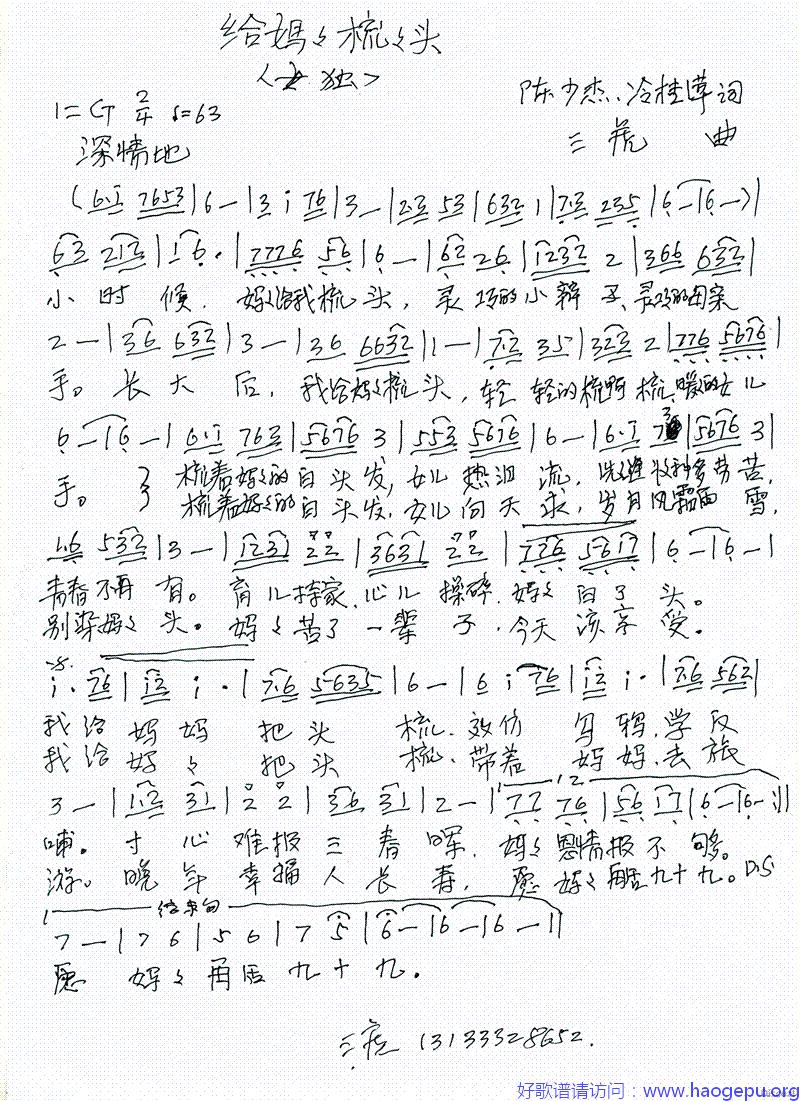 给妈々梳々头
<女独>
1=G 2/4 ♩=63
陈少杰、冷桂萍词
深情地
三虎 曲
(6·i 7653|6—|3 i 76|3—|23 53|632 1|7·3 235|6—|6—)|
63 213|1 6·|7776 56|6—|62 26|1232 2|366 632|
小时候，妈々给我梳头，灵巧的小辫子、灵巧的母亲
2—|36 632|3—|36 6632|1—|7·2 35|323 2|776 5676|
手。长大后，我给妈々梳头，轻轻的梳啊梳，暖的女儿
6—|6—|6·i 763|5676 3|553 5676|6—|6·i 7|5676 3|
手。梳着妈々的白头发，女儿热泪流，多劳苦，
梳着妈々的白头发，女儿向天求，岁月风霜雨雪，
16 532|3—|1231 22|3631 22|7276 5617|6—|6—|
青春不再有。育儿持家，心儿操碎，妈々白了头。
别染妈々头。妈々苦了一辈子，今天该享受。
i· 76|i2 i·|7·6 5635|6—|6 i 76|i2 i·|7·6 562|
我给妈妈把头梳，效仿乌鸦，学反
我给妈々把头梳，带着妈妈，去旅
3—|1·2 31|2 2|36 31|2—|77 76|56 17|6—|6—:||
哺。寸心难报三春晖，妈々恩情报不够。
游。晚年幸福人长寿，愿妈々再活九十九。D.S
结束句
7—|7 6|5 6|7 5|6—|6—|6—||
愿妈々再活九十九。
三虎 13133328652.
好歌谱请访问：www.haogepu.org